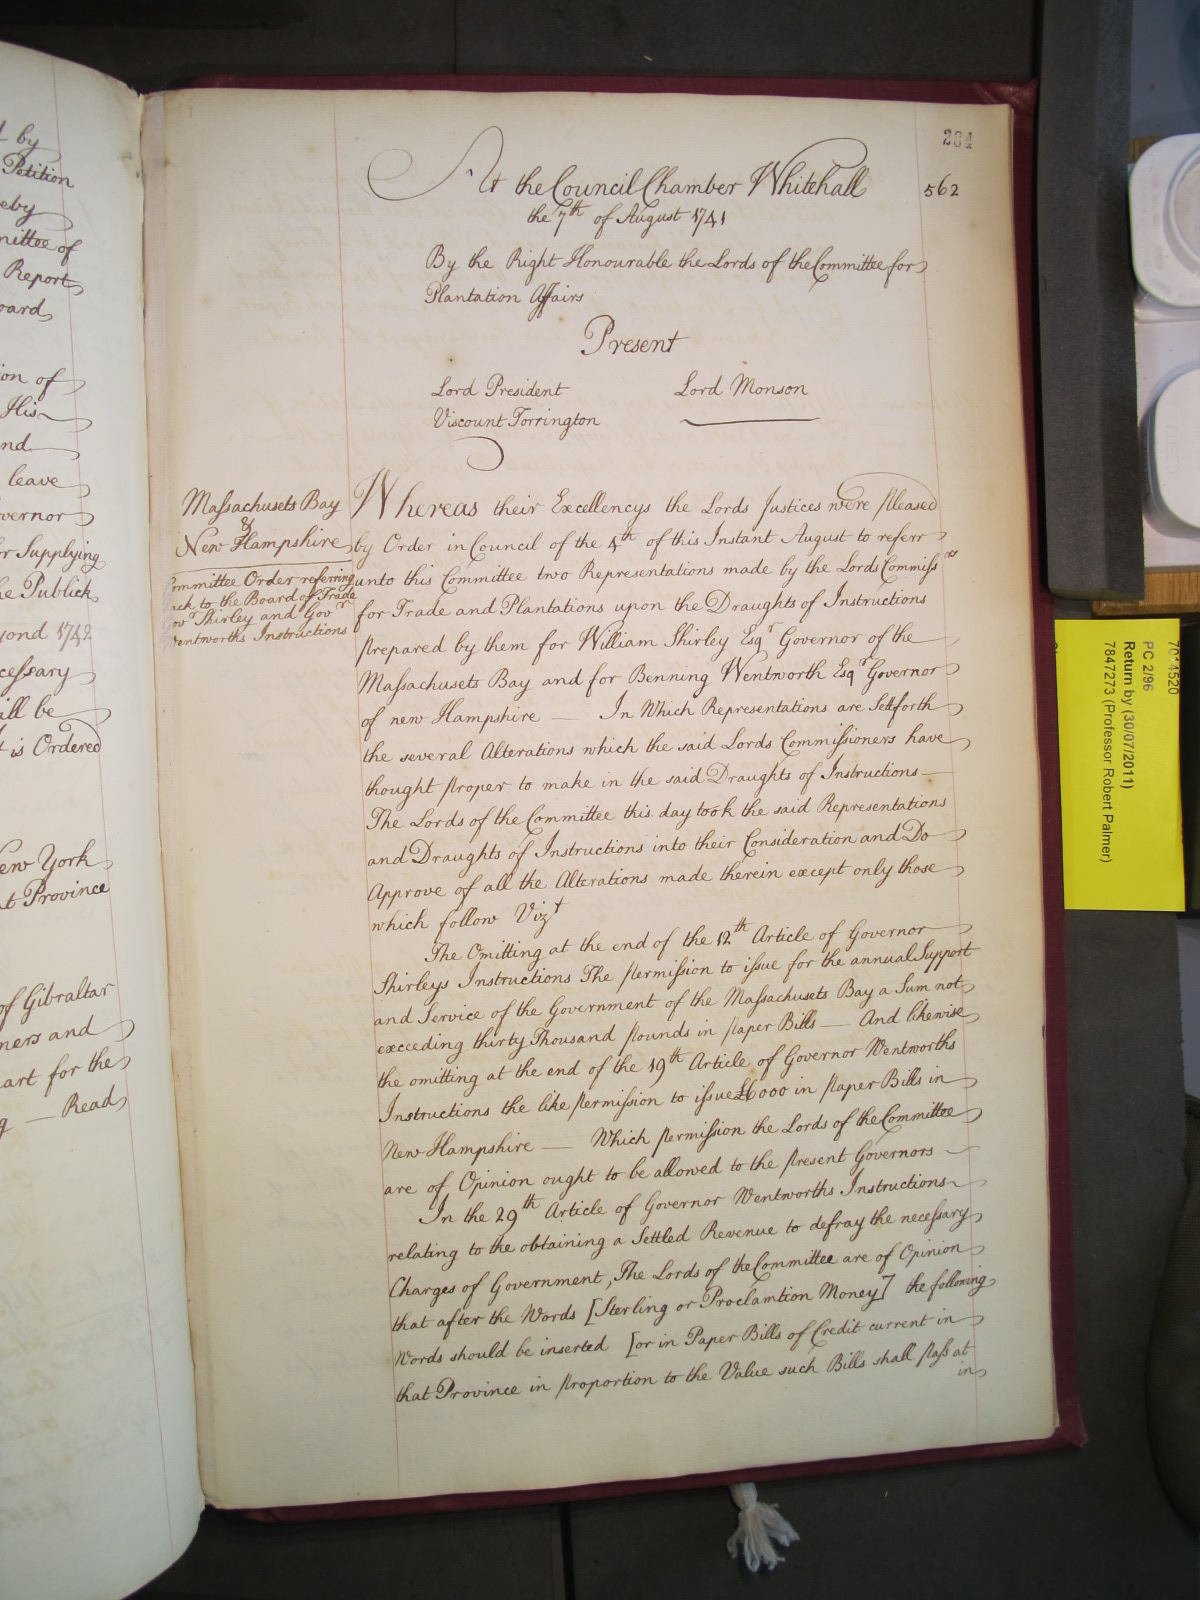 by
Petition
eby
mittee of
Report
oard
ion of
His
nd
leave
vernor
or Supplying
he Publick
yond 1742
cessary
all be
t is Ordered
New York
at Province
of Gibraltar
ners and
art for the
Read
284
At the Council Chamber Whitehall
562
the 7th of August 1741
By the Right Honourable the Lords of the Committee for
Plantation Affairs
Present
Lord President Lord Monson
Viscount Torrington
Massachusets Bay
&
New Hampshire
Committee Order referring
back to the Board of Trade
Govr Shirley and Govr
Wentworths Instructions
Whereas their Excellencys the Lords Justices were pleased
by Order in Council of the 4th of this Instant August to referr
unto this Committee two Representations made by the Lords Commissrs
for Trade and Plantations upon the Draughts of Instructions
prepared by them for William Shirley Esqr Governor of the
Massachusets Bay and for Benning Wentworth Esqr Governor
of new Hampshire — In Which Representations are Settforth
the several Alterations which the said Lords Commissioners have
thought proper to make in the said Draughts of Instructions —
The Lords of the Committee this day took the said Representations
and Draughts of Instructions into their Consideration and Do
Approve of all the Alterations made therein except only those
which follow Vizt
The Omitting at the end of the 12th Article of Governor
Shirleys Instructions The permission to issue for the annual Support
and Service of the Government of the Massachusets Bay a Sum not
exceeding thirty Thousand pounds in paper Bills — And likewise
the omitting at the end of the 19th Article of Governor Wentworths
Instructions the like permission to issue £6000 in paper Bills in
New Hampshire — Which permission the Lords of the Committee
are of Opinion ought to be allowed to the present Governors —
In the 29th Article of Governor Wentworths Instructions
relating to the obtaining a Settled Revenue to defray the necessary
Charges of Government, The Lords of the Committee are of Opinion
that after the Words [Sterling or Proclamtion Money] the following
Words should be inserted [or in Paper Bills of Credit current in
that Province in proportion to the Value such Bills shall pass at
in
PC 2/96
Return by (30/07/2011)
7847273 (Professor Robert Palmer)